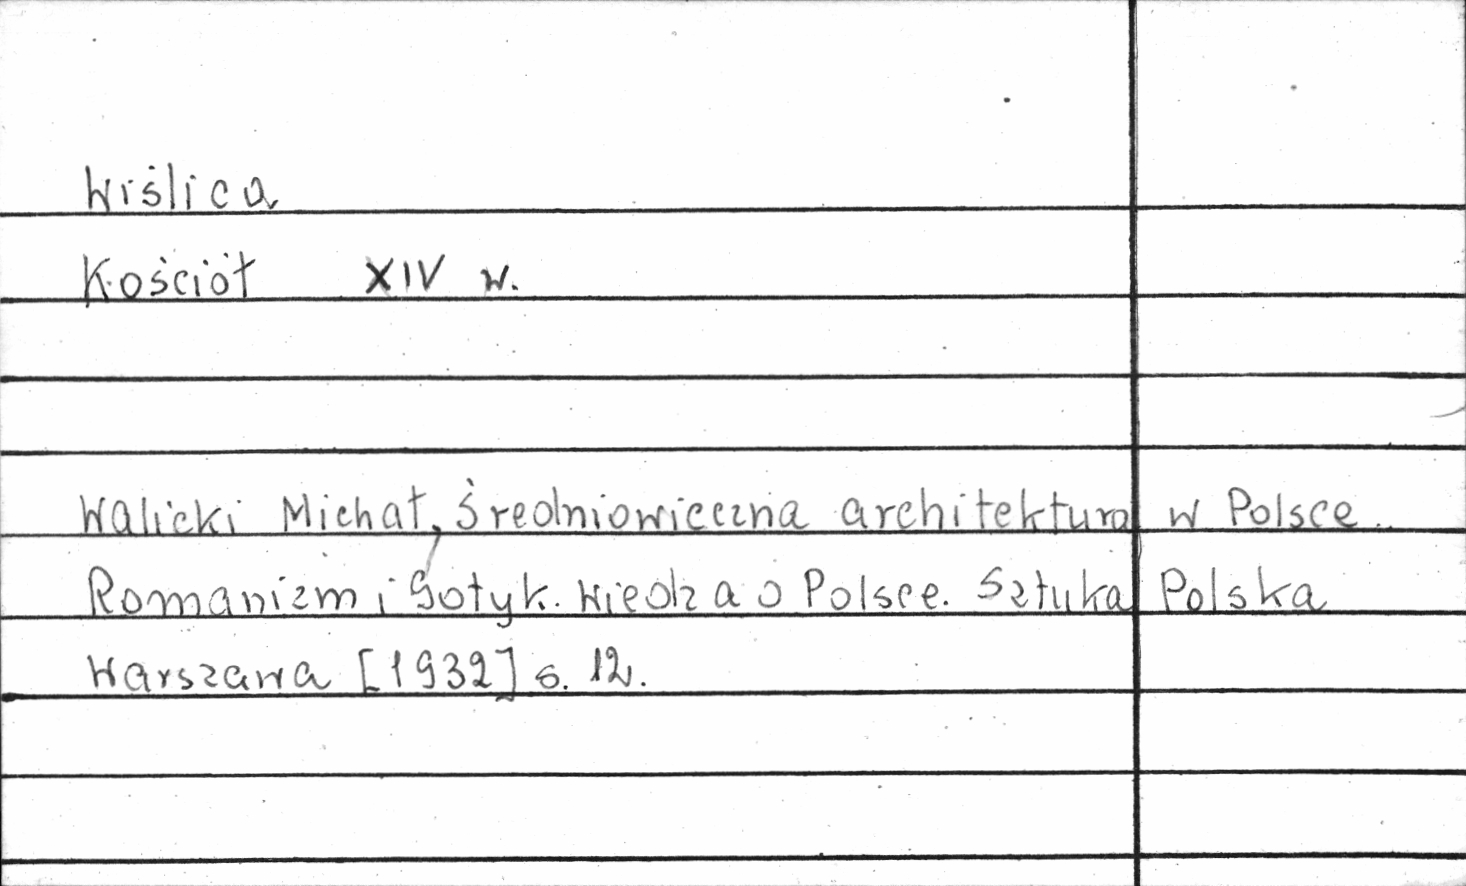 Wiślica
Kościół XIV w.
Walicki Michał, Średniowieczna architektura w Polsce.
Romanizm i Gotyk. Wiedza o Polsce. Sztuka Polska
Warszawa [1932] s. 12.